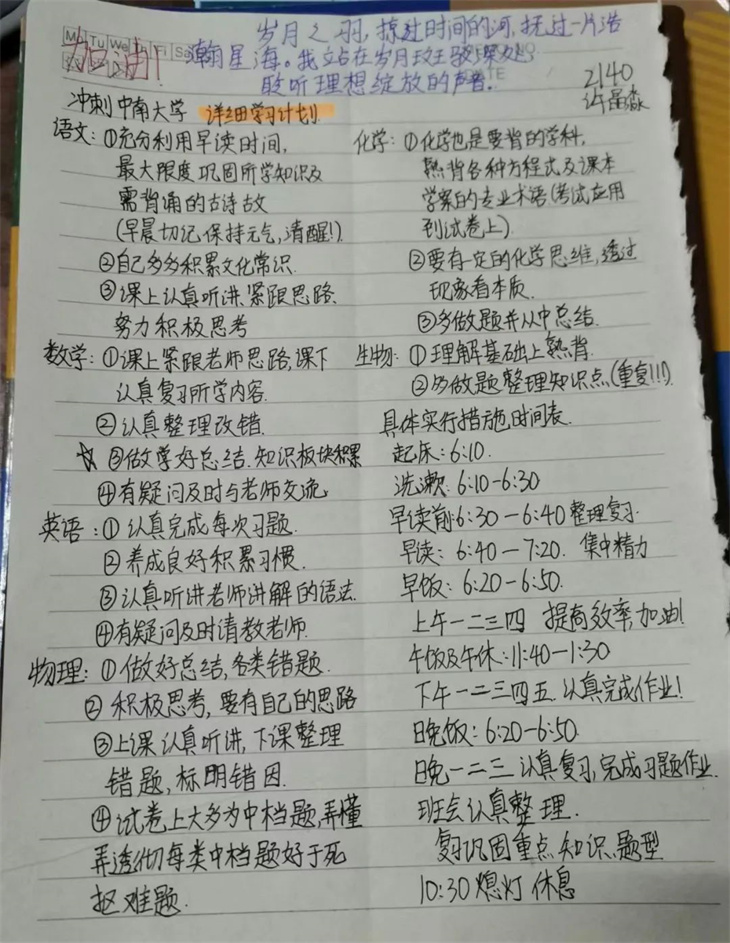 岁月之羽,掠过时间的河,抚过一片浩
瀚星海。我立站在岁月斑驳深处,
聆听理想绽放的声音.
加油!
Mo Tu We Th Fr Sa
2140
冲刺中南大学 详细学习计划.
语文:①充分利用早读时间,
最大限度巩固所学知识及
需背诵的古诗古文
(早晨切记,保持元气,清醒!).
②自己多多积累文化常识.
③课上认真听讲,紧跟思路,
努力积极思考
数学:①课上紧跟老师思路,课下
认真复习所学内容.
②认真整理改错.
☆③做学好总结.知识板块积累
④有疑问及时与老师交流
英语:①认真完成每次习题.
②养成良好积累习惯.
③认真听讲老师讲解的语法.
④有疑问及时请教老师.
物理:①做好总结,各类错题.
②积极思考,要有自己的思路
③上课认真听讲,下课整理
错题,标明错因.
④试卷上大多为中档题,弄懂
弄透彻每类中档题好于死
抠难题.
化学:①化学也是要背的学科,
熟背各种方程式及课本
学案的专业术语(考试应用
到试卷上).
②要有一定的化学思维,透过
现象看本质.
③多做题并从中总结.
生物:①理解基础上熟背.
②多做题,整理知识点,(重复!!!).
具体实行措施,时间表.
起床:6:10.
洗漱:6:10-6:30
早读前:6:30-6:40整理复习.
早读:6:40-7:20.集中精力
早饭:6:20-6:50.
上午一二三四 提高效率,加油!
午饭及午休:11:40-1:30
下午一二三四五.认真完成作业!
晚饭:6:20-6:50.
晚一二三 认真复习,完成习题作业.
班会认真整理.
复习巩固重点,知识,题型
10:30熄灯 休息